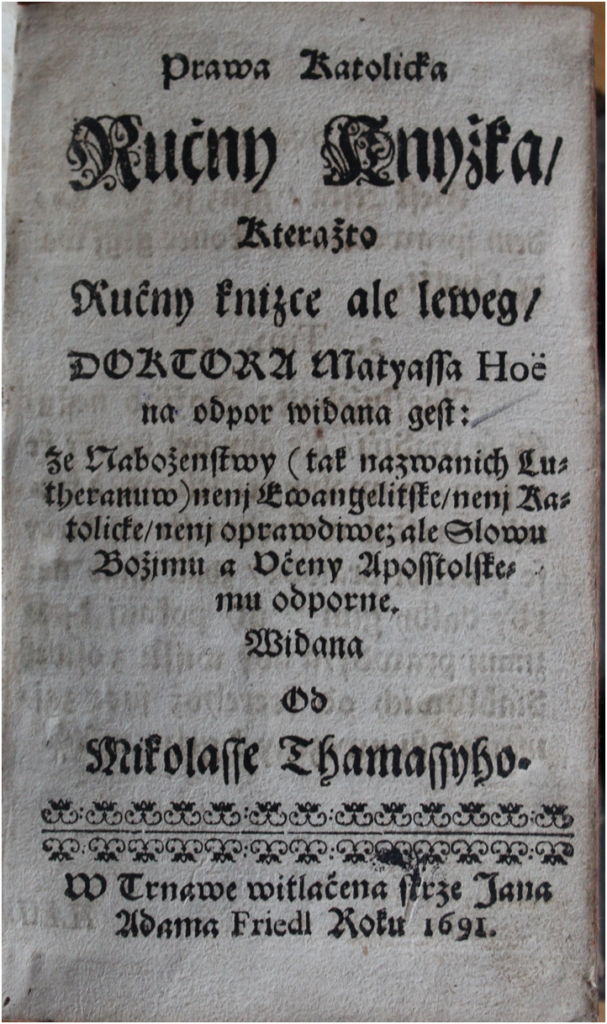 Prawa Katolicka
Ručny Knyžka/
Kteražto
Ručny knižce ale leweg/
DOKTORA Matyaſſa Hoë
na odpor widana geſt:
že Naboženſtwy (tak nazwanich Lu⸗
theranuw)nenj Ewangelitſke/nenj Ka⸗
tolicke/nenj oprawdiwe; ale Slowu
Božjmu a Včeny Apoſſtolſke⸗
mu odporne.
Widana
Od
Mikolaſſe Thamaſſyho.
W Trnawe witlačena ſkrze Jana
Adama Friedl Roku 1691.